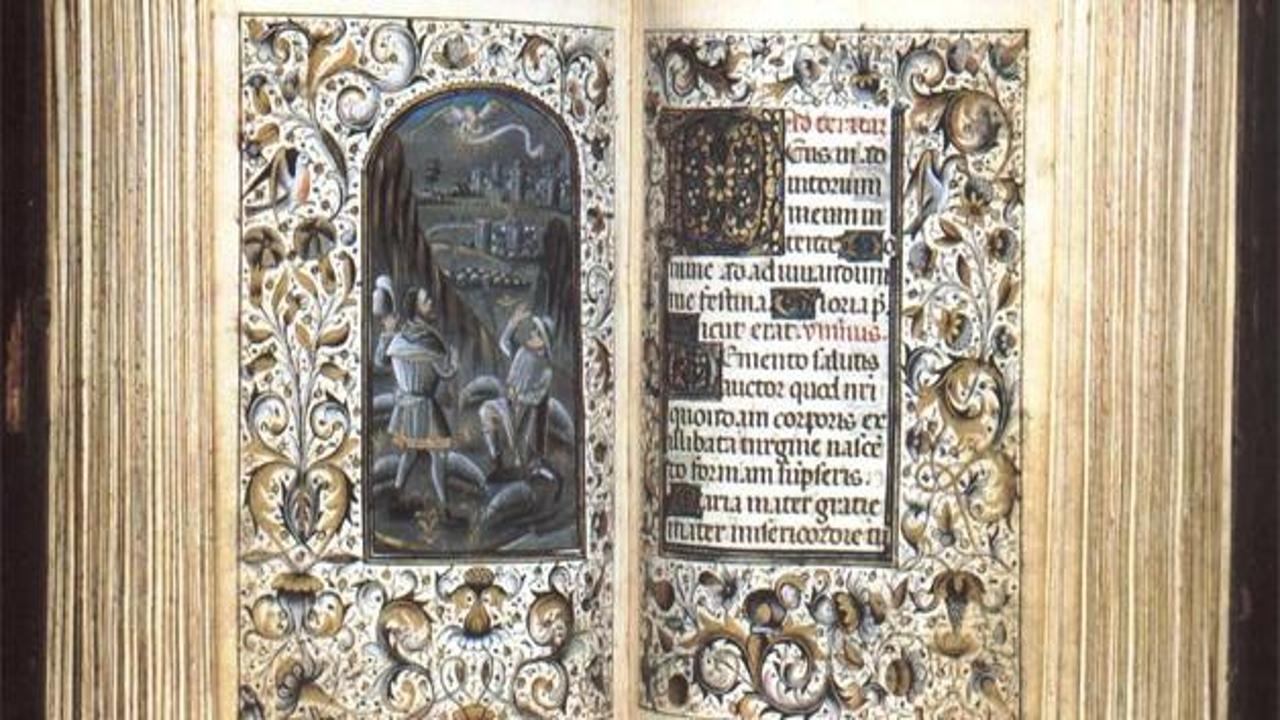 Ad terciar
Deus in ad
iutorium
meum in
tende Do
mine ad adiuuandum
me festina. Gloria p.
Sicut erat. ympnus.
Memento salutis
auctor quod nri
quondam corporis ex
illibata uirgine nascē
do formam sūpseris.
Maria mater gratie
mater misericordie tu